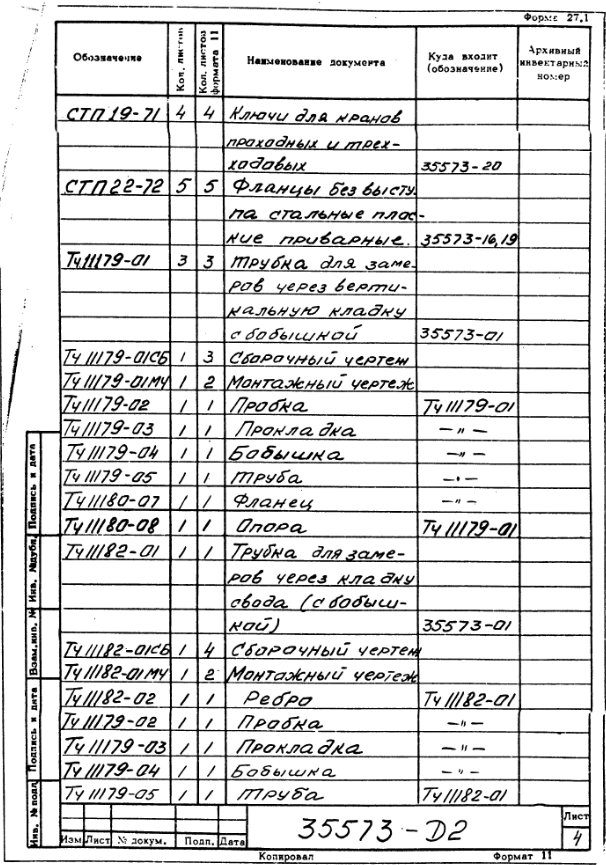 Форма 27.1
Обозначение Кол. листов Кол. листов формата 11 Наименование документа Куда входит (обозначение) Архивный инвентарный номер
СТП 19-71 4 4 Ключи для кранов
проходных и трех-
ходовых 35573-20
СТП 22-72 5 5 Фланцы без высту
па стальные плос-
кие приварные. 35573-16,19
ТЧ 11179-01 3 3 Трубка для заме-
ров через верти-
кальную кладку
с бобышкой 35573-01
ТЧ 11179-01СБ 1 3 Сборочный чертеж
ТЧ 11179-01МЧ 1 2 Монтажный чертеж
ТЧ 11179-02 1 1 Пробка ТЧ 11179-01
ТЧ 11179-03 1 1 Прокладка —"—
ТЧ 11179-04 1 1 Бобышка —"—
ТЧ 11179-05 1 1 Труба —"—
ТЧ 11180-07 1 1 Фланец —"—
ТЧ 11180-08 1 1 Опора ТЧ 11179-01
ТЧ 11182-01 1 1 Трубка для заме-
ров через кладку
свода (с бобыш-
кой) 35573-01
ТЧ 11182-01СБ 1 4 Сборочный чертеж
ТЧ 11182-01МЧ 1 2 Монтажный чертеж
ТЧ 11182-02 1 1 Ребро ТЧ 11182-01
ТЧ 11179-02 1 1 Пробка —"—
ТЧ 11179-03 1 1 Прокладка —"—
ТЧ 11179-04 1 1 Бобышка —"—
ТЧ 11179-05 1 1 Труба ТЧ 11182-01
Подпись и дата
Инв. № дубл.
Взам. инв. №
Подпись и дата
Инв. № подл.
35573-D2
Лист
4
Изм Лист № докум. Подп. Дата
Копировал Формат 11